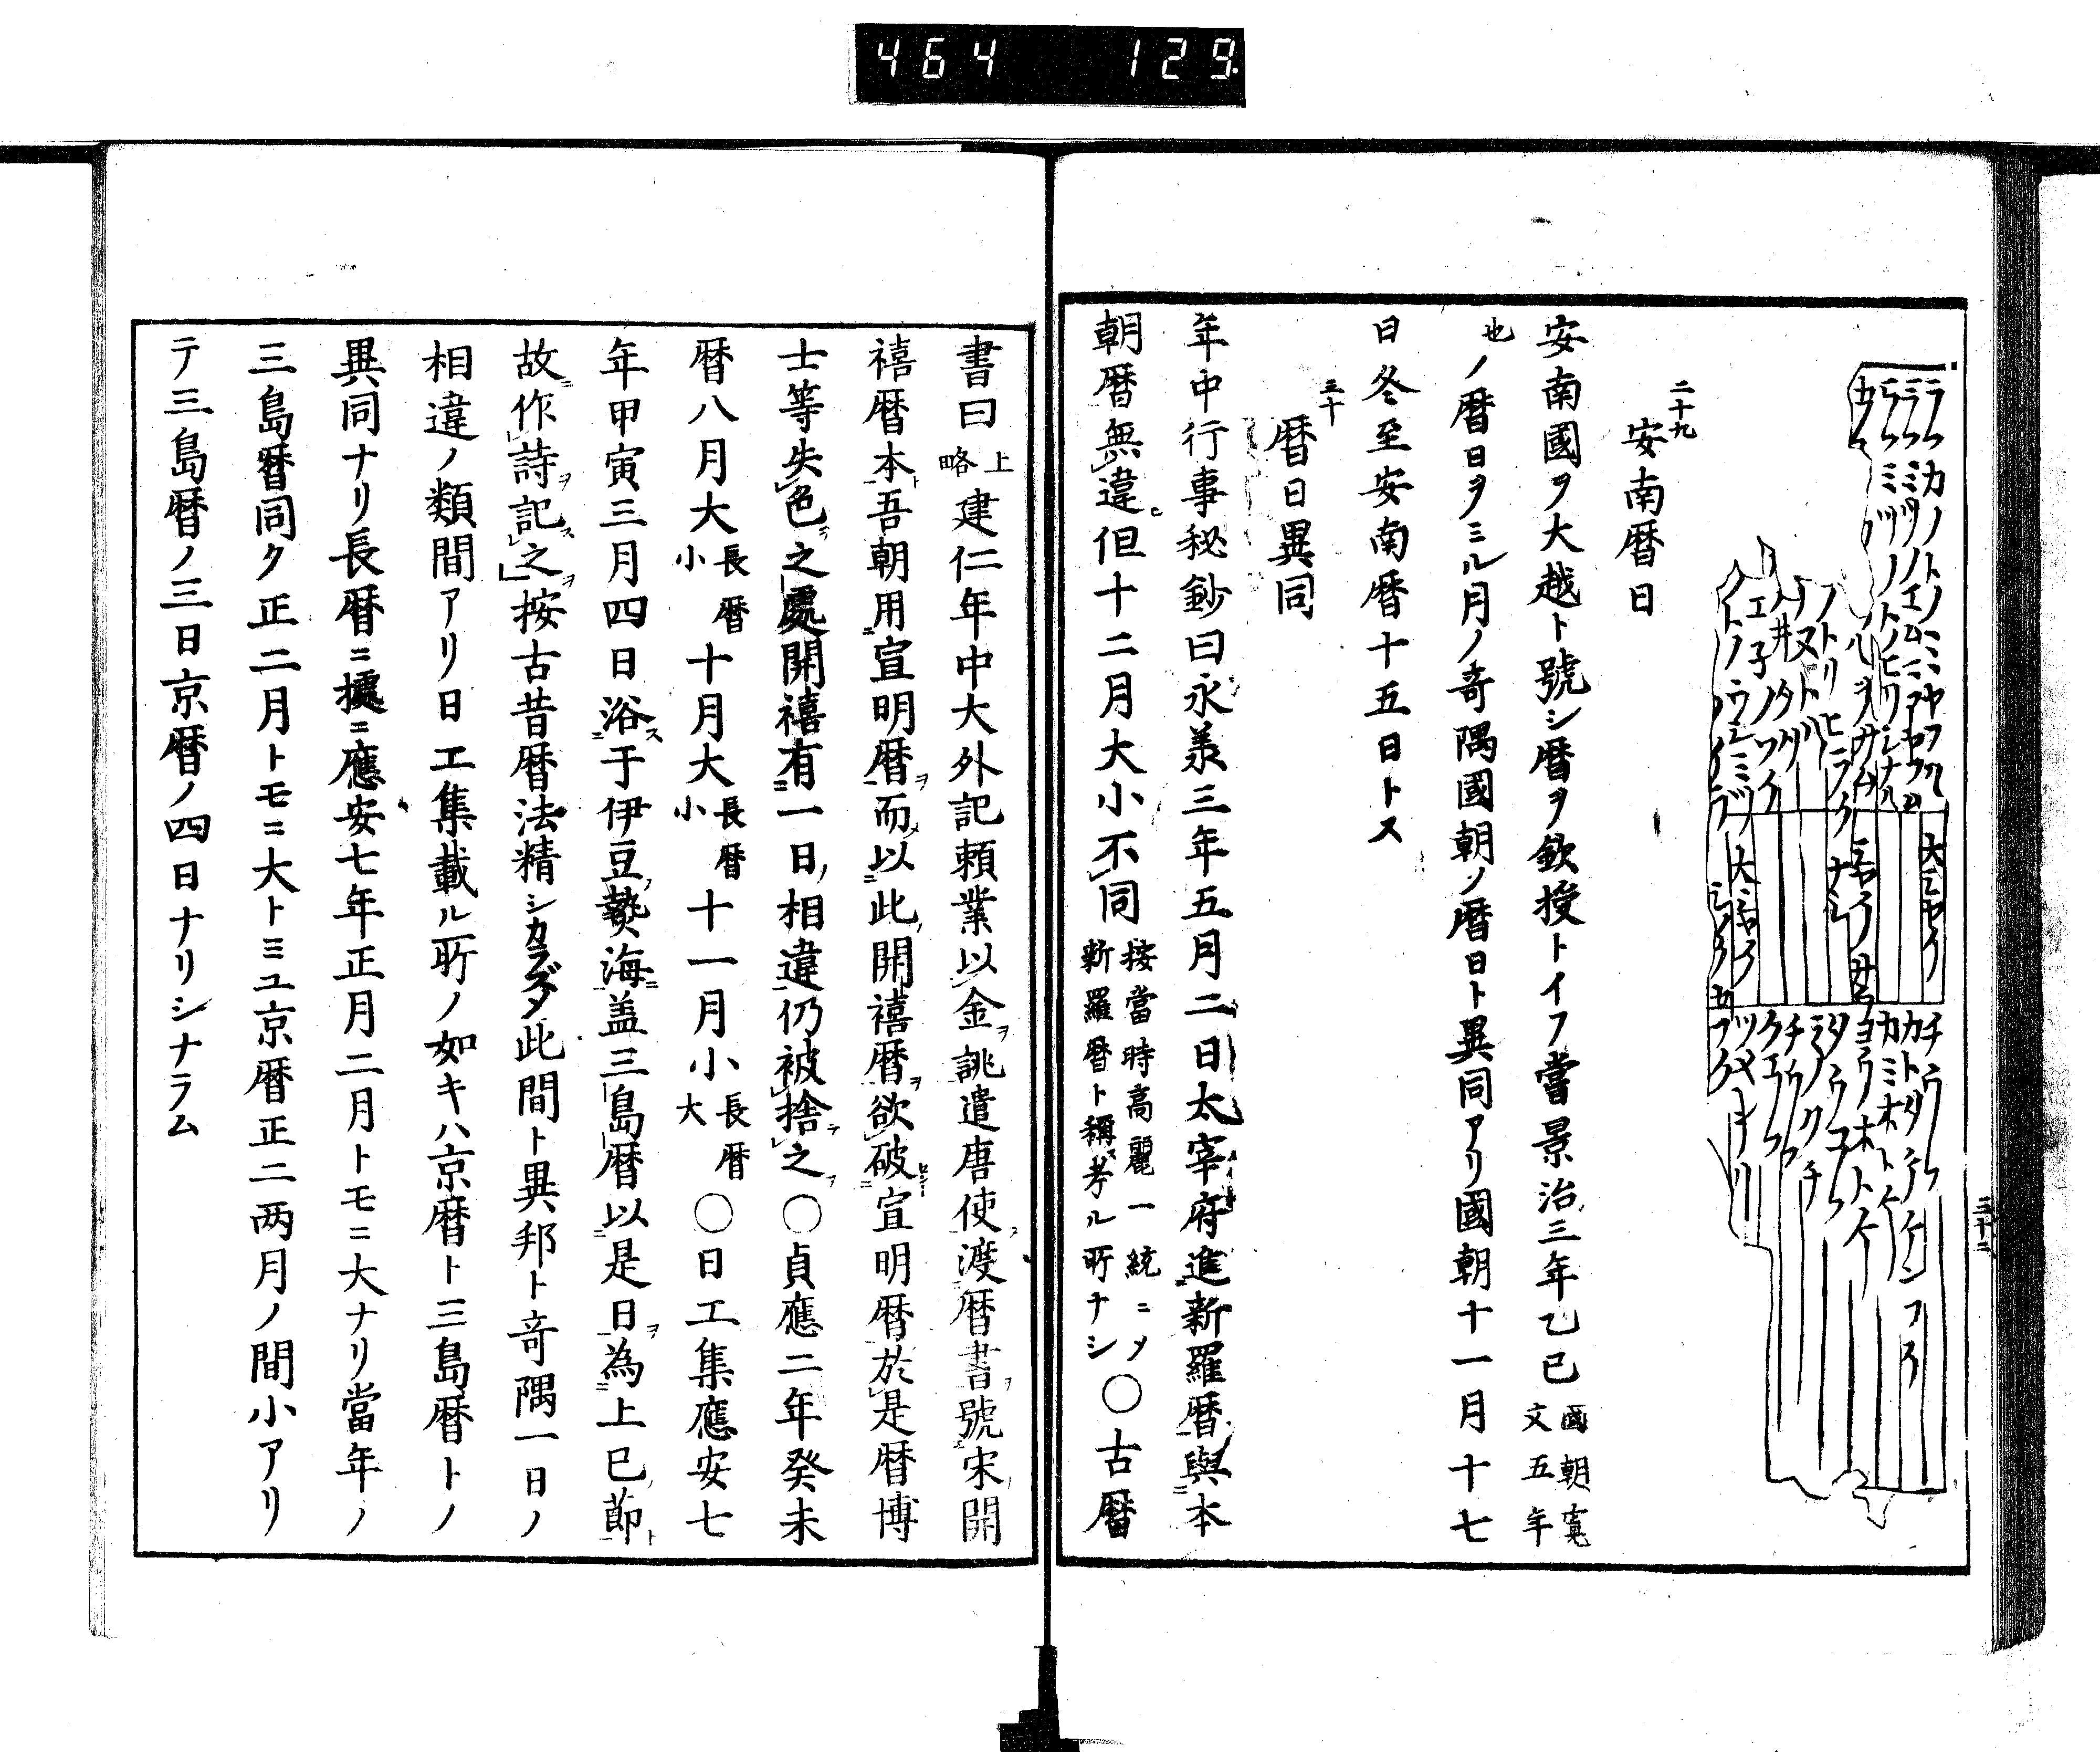 464 129
大シヤウ
二十九
安南暦日
安南國ヲ大越ト號シ暦ヲ欽授トイフ當景治三年乙巳國朝寛文五年
也ノ暦日ヲミル月ノ竒隅國朝ノ暦日ト異同アリ國朝十一月十七
日冬至安南暦十五日トス
三十
暦日異同
年中行事秘鈔曰永義三年五月二日太宰府進新羅暦與本
朝暦無違但十二月大小不同按當時高麗一統ニメ新羅暦ト稱ス考ル所ナシ〇古暦
三十二
書曰上略建仁年中大外記頼業以金誂遣唐使渡暦書號宋開
禧暦本吾朝用宣明暦而以此開禧暦欲破宣明暦於是暦博
士等失色之處開禧有一日相違仍被捨之〇貞應二年癸未
暦八月大長暦小十月大長暦小十一月小長暦大〇日工集應安七
年甲寅三月四日浴于伊豆𤍠海盖三島暦以是日為上巳節
故作詩記之按古昔暦法精シカラズメ此間ト異邦ト竒隅一日ノ
相違ノ類間アリ日工集載ル所ノ如キハ京暦ト三島暦トノ
異同ナリ長暦ニ據ニ應安七年正月二月トモニ大ナリ當年ノ
三島暦同ク正二月トモニ大トミユ京暦正二两月ノ間小アリ
テ三島暦ノ三日京暦ノ四日ナリシナラム